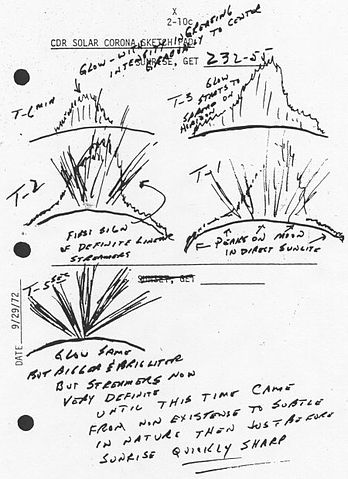 X
2-10c
CDR SOLAR CORONA SKETCH PAD
GLOW-WITH INCREASING
INTENSITY GRADUALLY TO CENTER
SUNRISE, GET 232-55
T-6 MIN
T-3 GLOW
STARTS TO
SPREAD ON
HORIZON
T-2
T-1
FIRST SIGN
OF DEFINITE LINEAR
STREAMERS
PEAKS ON MOON
IN DIRECT SUNLITE
T-5 SEC
SUNSET, GET
DATE 9/29/72
GLOW SAME
BUT BIGGER & BRIGHTER
BUT STREAMERS NOW
VERY DEFINITE
UNTIL THIS TIME CAME
FROM NON EXISTENSE TO SUBTLE
IN NATURE THEN JUST BEFORE
SUNRISE QUICKLY SHARP